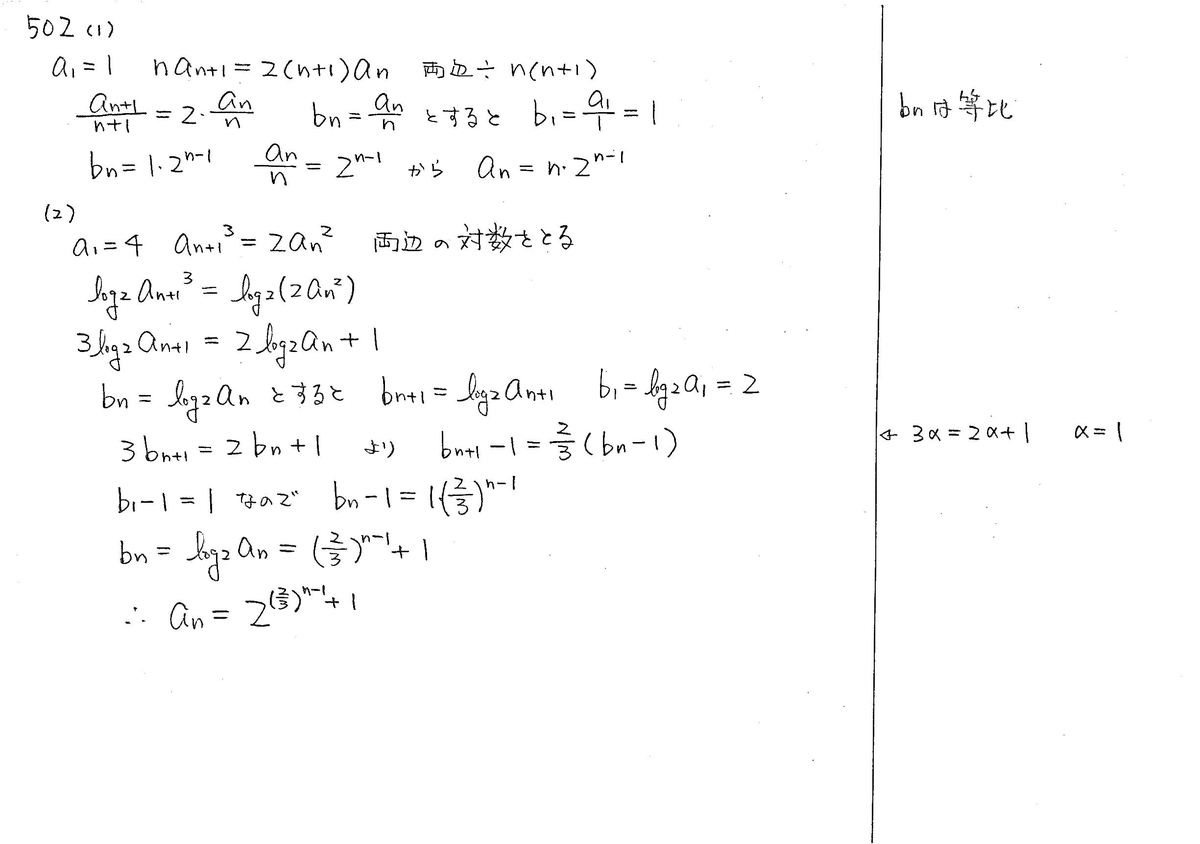 502 (1)
a₁ = 1 naₙ₊₁ = 2(n+1)aₙ 両辺÷ n(n+1)
aₙ₊₁/(n+1) = 2・aₙ/n bₙ = aₙ/n とすると b₁ = a₁/1 = 1 bₙは等比
bₙ = 1・2ⁿ⁻¹ aₙ/n = 2ⁿ⁻¹ から aₙ = n・2ⁿ⁻¹
(2)
a₁ = 4 aₙ₊₁³ = 2aₙ² 両辺の対数をとる
log₂aₙ₊₁³ = log₂(2aₙ²)
3log₂aₙ₊₁ = 2log₂aₙ + 1
bₙ = log₂aₙ とすると bₙ₊₁ = log₂aₙ₊₁ b₁ = log₂a₁ = 2
3bₙ₊₁ = 2bₙ + 1 より bₙ₊₁ - 1 = 2/3(bₙ - 1) ← 3α = 2α + 1 α = 1
b₁ - 1 = 1 なので bₙ - 1 = 1・(2/3)ⁿ⁻¹
bₙ = log₂aₙ = (2/3)ⁿ⁻¹ + 1
∴ aₙ = 2^((2/3)ⁿ⁻¹ + 1)